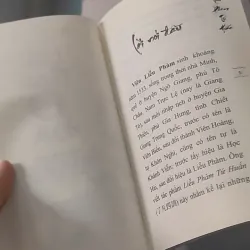 Lời nói đầu
Viên Liễu Phàm sinh khoảng
năm 1533, sống trong thời nhà Minh,
quê ở huyện Ngô Giang, phủ Tô
Châu, Nam Trực Lệ (nay là Giang
Tô), sau mới nhập tịch ở huyện Gia
Thiện, phủ Gia Hưng, tỉnh Chiết
Giang, Trung Quốc, trước có tên là
Viên Biểu, sau đổi thành Viên Hoàng,
tự Khôn Nghi, cũng có tên tự là
Khánh Viễn; trước lấy hiệu là Học
Hải, sau đổi hiệu là Liễu Phàm. Ông
viết tác phẩm Liễu Phàm Tứ Huấn
này nhằm kể lại những